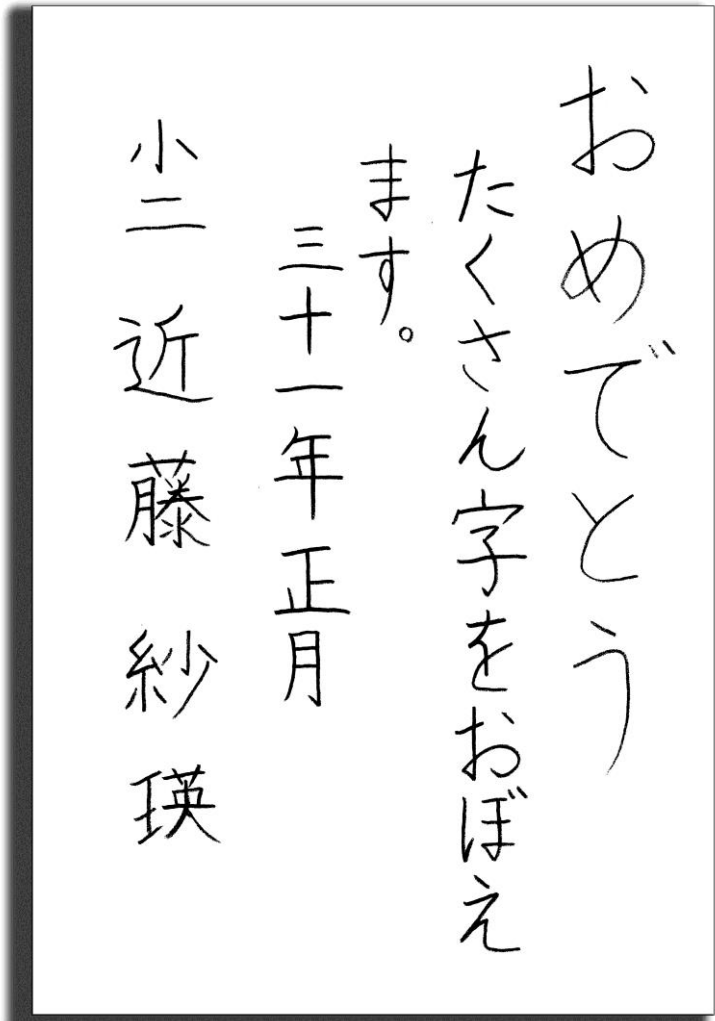 おめでとう
たくさん字をおぼえ
ます。
三十一年正月
小二 近藤紗瑛